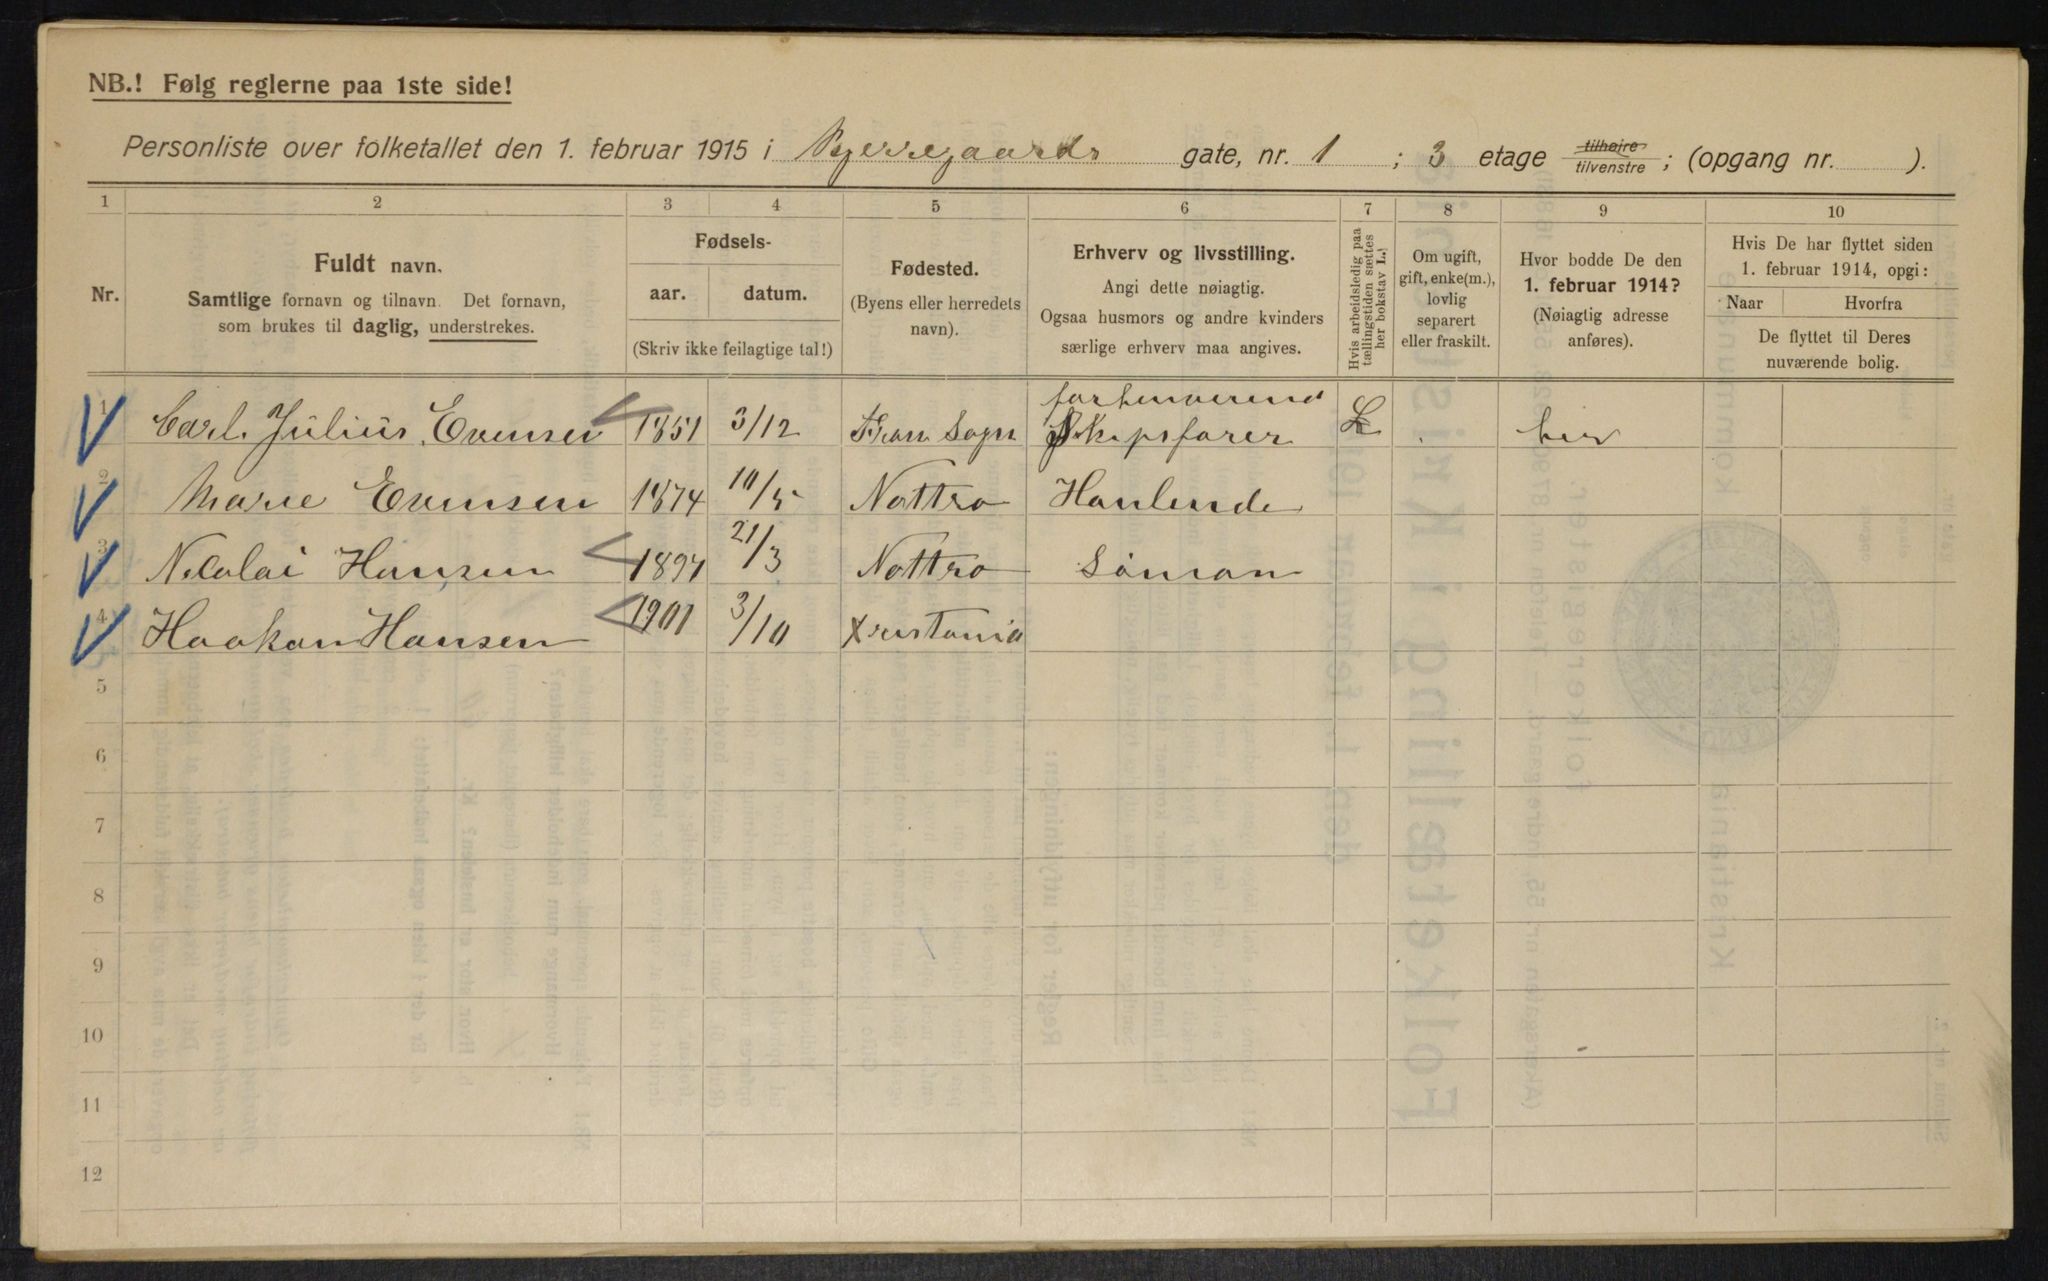 NB.! Følg reglerne paa 1ste side!
Personliste over folketallet den 1. februar 1915 i Bjerregaards gate, nr. 1 ; 3 etage tilhøire / tilvenstre ; (opgang nr. ).
1 2 3 4 5 6 7 8 9 10
Nr.
Fuldt navn.
Samtlige fornavn og tilnavn. Det fornavn,
som brukes til daglig, understrekes.
Fødsels-
aar. datum.
(Skriv ikke feilagtige tal!)
Fødested.
(Byens eller herredets
navn).
Erhverv og livsstilling.
Angi dette nøiagtig.
Ogsaa husmors og andre kvinders
særlige erhverv maa angives.
Hvis arbeidsledig paa
tællingstiden sættes
her bokstav L.!
Om ugift,
gift, enke(m.),
lovlig
separert
eller fraskilt.
Hvor bodde De den
1. februar 1914?
(Nøiagtig adresse
anføres).
Hvis De har flyttet siden
1. februar 1914, opgi:
Naar Hvorfra
De flyttet til Deres
nuværende bolig.
forhenværend
1 Carl Julius Evensen 1851 3/12 Fran Sogn Skipsfører L her
2 Marie Evensen 1874 10/5 Nøttrø Hanlende
3 Nicolai Hansen 1897 21/3 Nøttrø Söman
4 Haakon Hansen 1901 3/10 Xristania
5
6
7
8
9
10
11
12